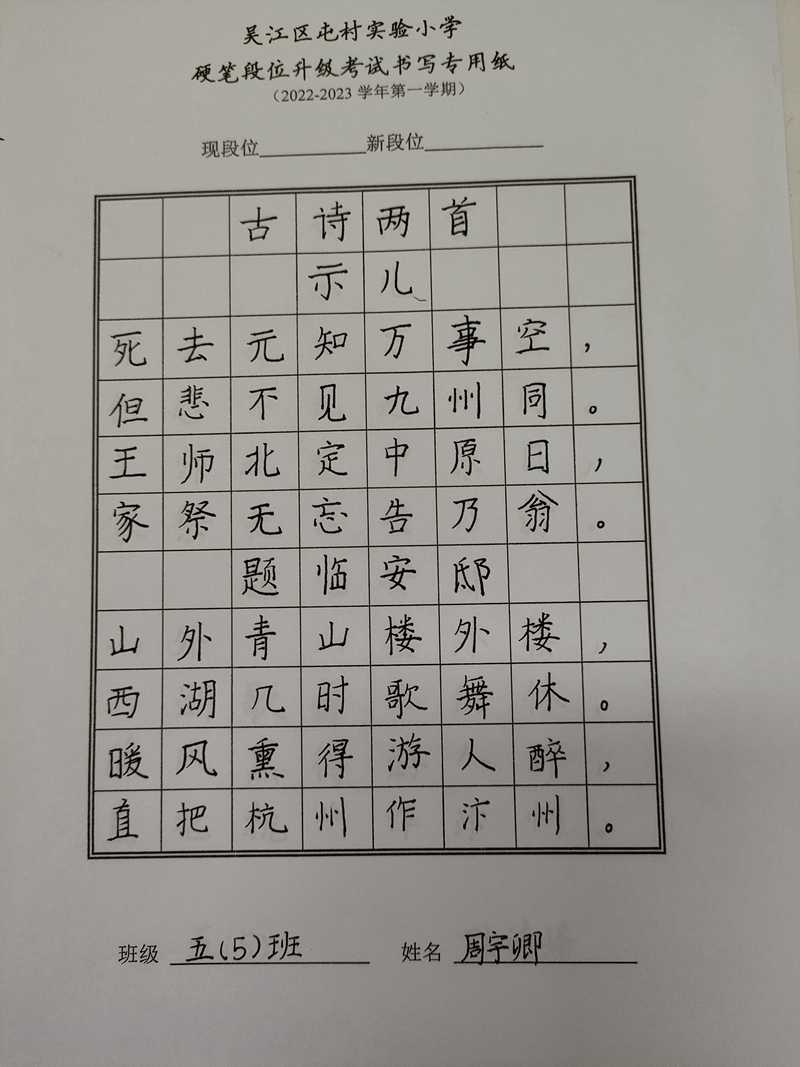 吴江区屯村实验小学
硬笔段位升级考试书写专用纸
（2022-2023 学年第一学期）
现段位__________新段位__________
古诗两首
示儿
死去元知万事空，
但悲不见九州同。
王师北定中原日，
家祭无忘告乃翁。
题临安邸
山外青山楼外楼，
西湖几时歌舞休。
暖风熏得游人醉，
直把杭州作汴州。
班级 五(5)班 姓名 周宇卿